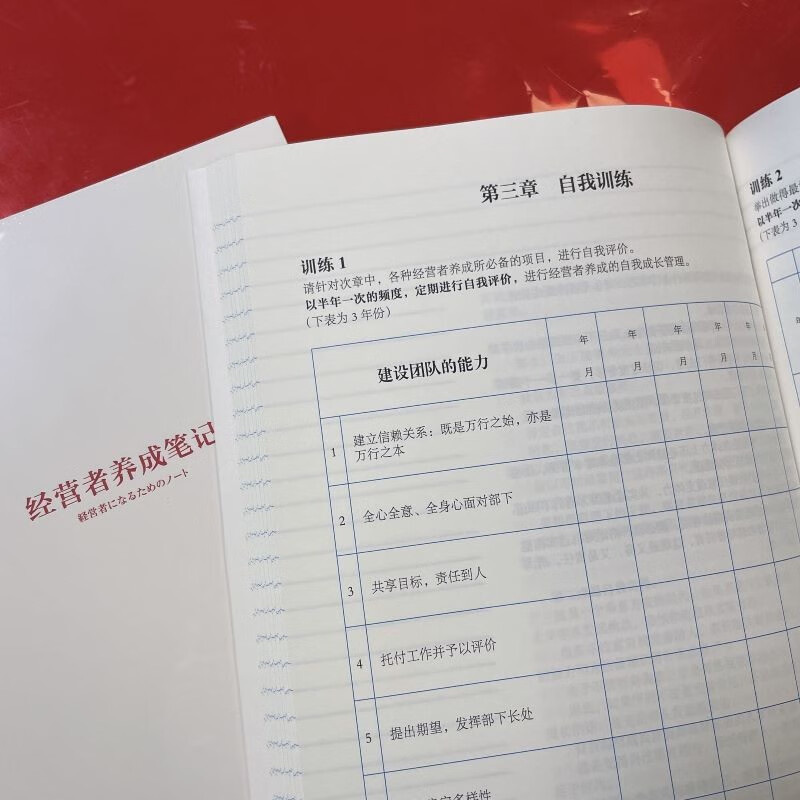 经营者养成笔记
経営者になるためのノート
第三章 自我训练
训练 1
请针对次章中，各种经营者养成所必备的项目，进行自我评价。
以半年一次的频度，定期进行自我评价，进行经营者养成的自我成长管理。
（下表为 3 年份）
建设团队的能力
年 年 年 年 年
月 月 月 月
1 建立信赖关系：既是万行之始，亦是
万行之本
2 全心全意、全身心面对部下
3 共享目标，责任到人
4 托付工作并予以评价
5 提出期望，发挥部下长处
多样性
训练 2
举出做得最
以半年一次
（下表为 3